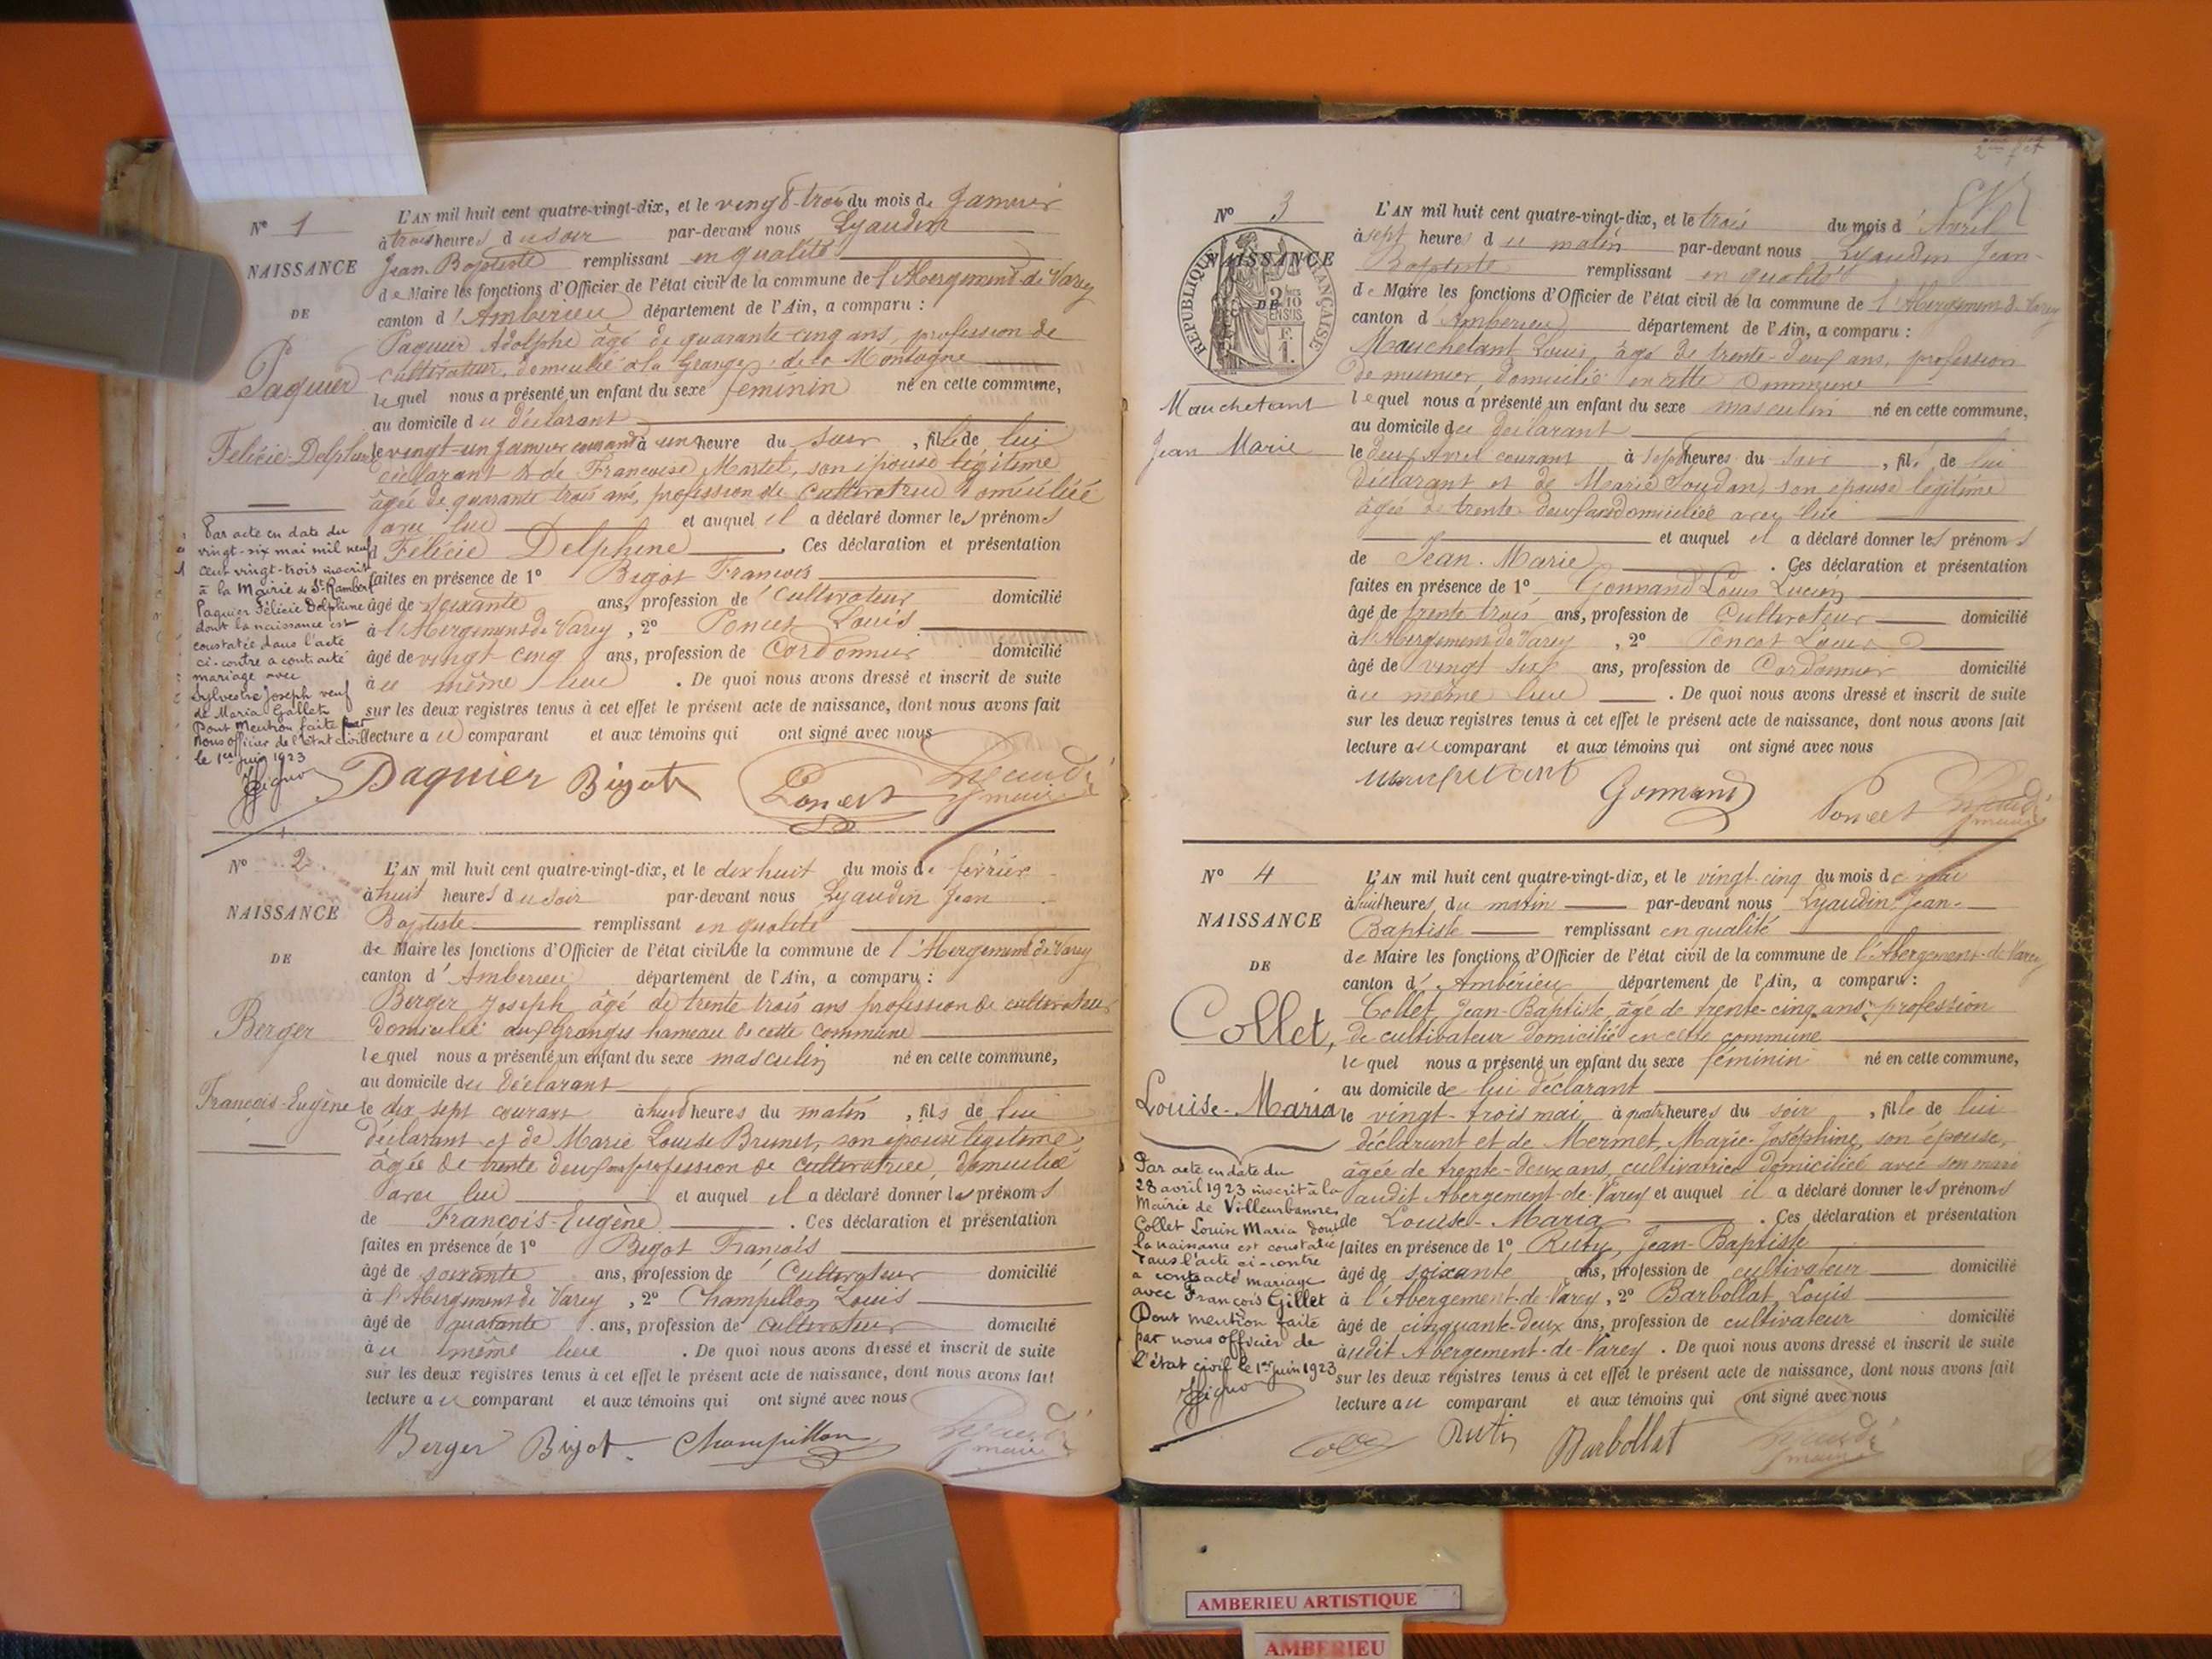 N° 1
NAISSANCE
DE
Paquier
Félicie-Delphine
L'AN mil huit cent quatre-vingt-dix, et le vingt-trois du mois de Janvier
à trois heures du soir par-devant nous Lyaudin
Jean-Baptiste remplissant en qualité
de Maire les fonctions d'Officier de l'état civil de la commune de l'Abergement de Varey
canton d'Ambérieu département de l'Ain, a comparu :
Paquier Adolphe âgé de quarante cinq ans, profession de
cultivateur, domicilié à la Grange de la Montagne
lequel nous a présenté un enfant du sexe féminin né en cette commune,
au domicile du déclarant
le vingt-un Janvier courant à une heure du soir, fille de lui
déclarant & de Françoise Martel, son épouse légitime
âgée de quarante trois ans, profession de cultivatrice domiciliée
avec lui et auquel il a déclaré donner les prénoms
Félicie Delphine. Ces déclaration et présentation
faites en présence de 1° Bigot François
âgé de soixante ans, profession de Cultivateur domicilié
à l'Abergement de Varey, 2° Poncet Louis
âgé de vingt cinq ans, profession de Cordonnier domicilié
au même lieu. De quoi nous avons dressé et inscrit de suite
sur les deux registres tenus à cet effet le présent acte de naissance, dont nous avons fait
lecture au comparant et aux témoins qui ont signé avec nous
Paquier Bigot Poncet Lyaudin maire
Par acte en date du
vingt-six mai mil neuf
cent vingt-trois inscrit
à la Mairie de St Rambert
Paquier Félicie Delphine
dont la naissance est
constatée dans l'acte
ci-contre a contracté
mariage avec
Sylvestre Joseph veuf
de Maria Gallet
Dont mention faite par
nous officier de l'Etat civil
le 1er Juin 1923
N° 2
NAISSANCE
DE
Berger
François-Eugène
L'AN mil huit cent quatre-vingt-dix, et le dix huit du mois de février
à huit heures du soir par-devant nous Lyaudin Jean
Baptiste remplissant en qualité
de Maire les fonctions d'Officier de l'état civil de la commune de l'Abergement de Varey
canton d'Ambérieu département de l'Ain, a comparu :
Berger Joseph âgé de trente trois ans profession de cultivateur
domicilié aux Granges hameau de cette commune
lequel nous a présenté un enfant du sexe masculin né en cette commune,
au domicile du déclarant
le dix sept courant à huit heures du matin, fils de lui
déclarant et de Marie Louise Brunet, son épouse légitime,
âgée de trente deux ans profession de cultivatrice, domiciliée
avec lui et auquel il a déclaré donner les prénoms
de François-Eugène. Ces déclaration et présentation
faites en présence de 1° Bigot François
âgé de soixante ans, profession de Cultivateur domicilié
à l'Abergement de Varey, 2° Champillon Louis
âgé de quarante ans, profession de cultivateur domicilié
au même lieu. De quoi nous avons dressé et inscrit de suite
sur les deux registres tenus à cet effet le présent acte de naissance, dont nous avons fait
lecture au comparant et aux témoins qui ont signé avec nous
Berger Bigot Champillon Lyaudin maire
N° 3
NAISSANCE
DE
RÉPUBLIQUE FRANÇAISE
Mauchetant
Jean Marie
L'AN mil huit cent quatre-vingt-dix, et le trois du mois d'Avril
à sept heures du matin par-devant nous Lyaudin Jean-
Baptiste remplissant en qualité
de Maire les fonctions d'Officier de l'état civil de la commune de l'Abergement de Varey
canton d'Ambérieu département de l'Ain, a comparu :
Mauchetant Louis, âgé de trente-deux ans, profession
de meunier, domicilié en cette commune
lequel nous a présenté un enfant du sexe masculin né en cette commune,
au domicile du déclarant
le deux Avril courant à sept heures du soir, fils de lui
déclarant et de Marie Soudan, son épouse légitime
âgée de trente-deux ans domiciliée avec lui
et auquel il a déclaré donner les prénoms
de Jean-Marie. Ces déclaration et présentation
faites en présence de 1° Gonnand Louis Lucien
âgé de trente trois ans, profession de Cultivateur domicilié
à l'Abergement de Varey, 2° Poncet Louis
âgé de vingt six ans, profession de Cordonnier domicilié
au même lieu. De quoi nous avons dressé et inscrit de suite
sur les deux registres tenus à cet effet le présent acte de naissance, dont nous avons fait
lecture au comparant et aux témoins qui ont signé avec nous
Mauchetant Gonnand Poncet Lyaudin maire
N° 4
NAISSANCE
DE
Collet,
Louise-Maria
L'AN mil huit cent quatre-vingt-dix, et le vingt-cinq du mois de mai
à huit heures du matin par-devant nous Lyaudin Jean-
Baptiste remplissant en qualité
de Maire les fonctions d'Officier de l'état civil de la commune de l'Abergement-de-Varey
canton d'Ambérieu département de l'Ain, a comparu :
Collet, Jean-Baptiste, âgé de trente-cinq ans, profession
de cultivateur domicilié en cette commune
lequel nous a présenté un enfant du sexe féminin né en cette commune,
au domicile de lui déclarant
le vingt-trois mai à quatre heures du soir, fille de lui
déclarant et de Mermet, Marie-Joséphine, son épouse,
âgée de trente-deux ans, cultivatrice domiciliée avec son mari
audit Abergement-de-Varey et auquel il a déclaré donner les prénoms
de Louise-Maria. Ces déclaration et présentation
faites en présence de 1° Ruty, Jean-Baptiste
âgé de soixante ans, profession de cultivateur domicilié
à l'Abergement-de-Varey, 2° Barbollat, Louis
âgé de cinquante-deux ans, profession de cultivateur domicilié
audit Abergement-de-Varey. De quoi nous avons dressé et inscrit de suite
sur les deux registres tenus à cet effet le présent acte de naissance, dont nous avons fait
lecture au comparant et aux témoins qui ont signé avec nous
Rutin Barbollat Lyaudin maire
Par acte en date du
28 avril 1923 inscrit à la
Mairie de Villeurbanne,
Collet Louise Maria dont
la naissance est constatée
dans l'acte ci-contre
a contracté mariage
avec François Gillet
Dont mention faite
par nous officier de
l'état civil le 1er Juin 1923
AMBERIEU ARTISTIQUE
AMBERIEU